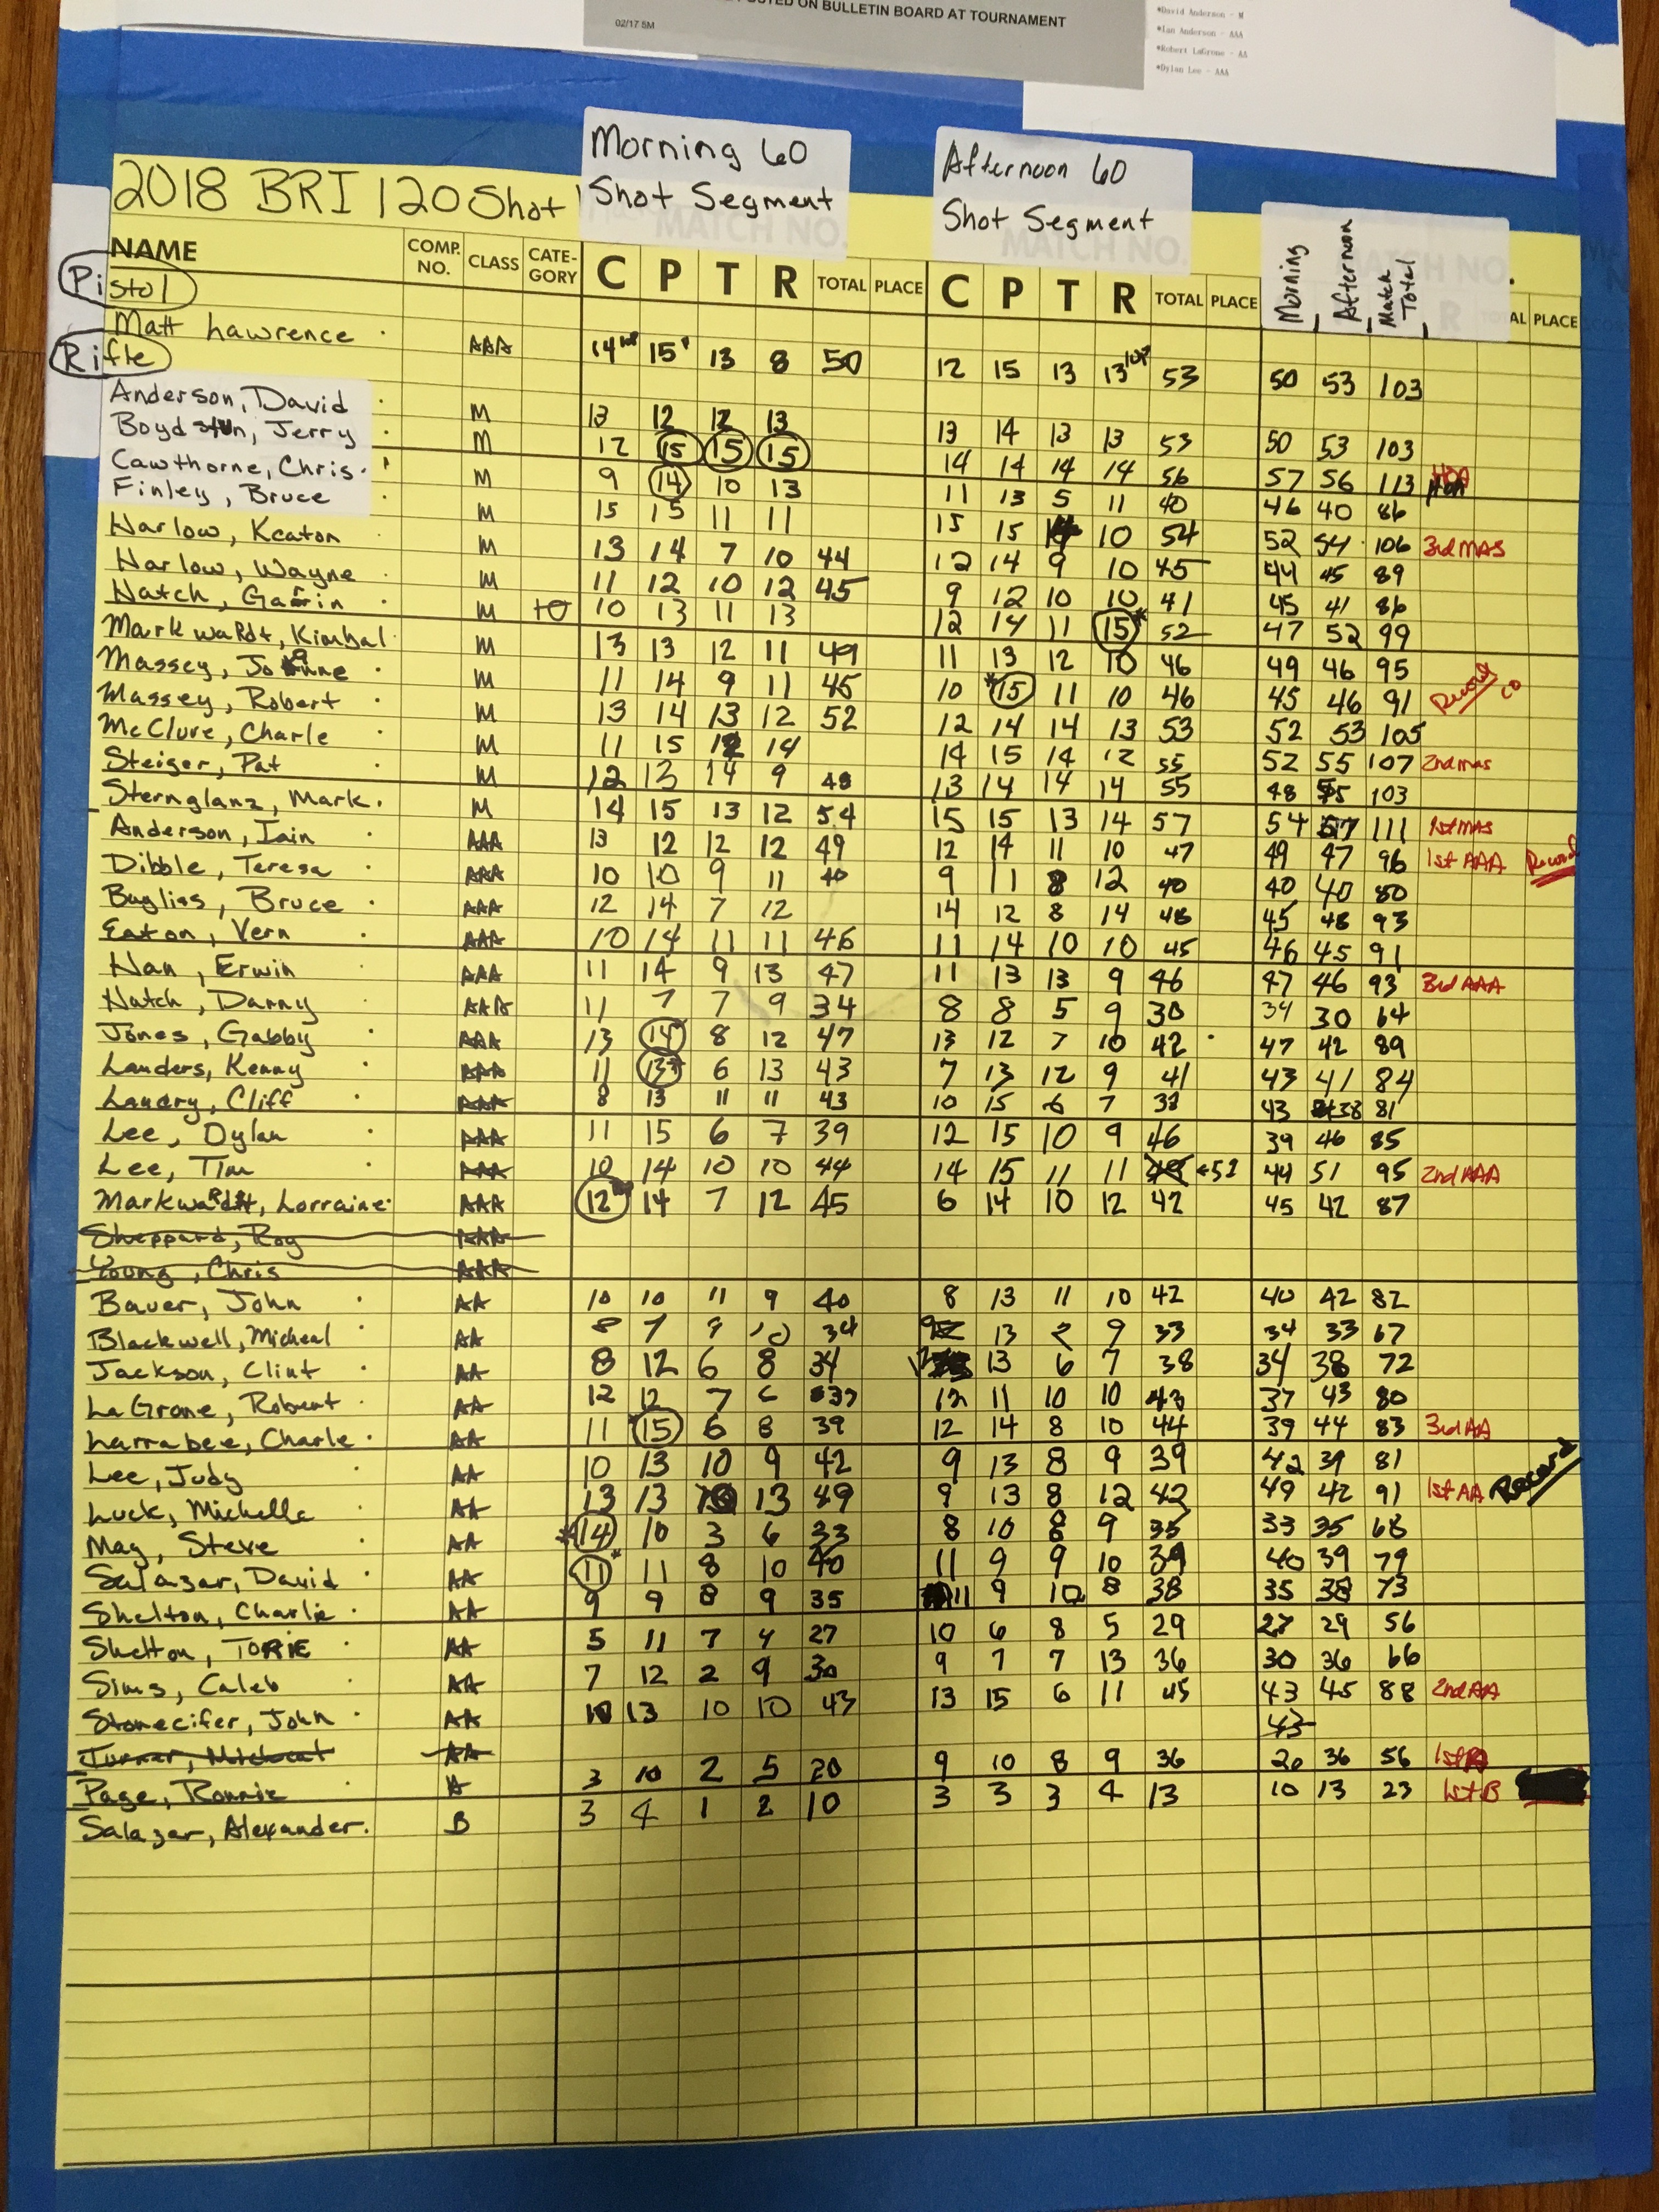 OSTED ON BULLETIN BOARD AT TOURNAMENT
02/17 5M
*David Anderson - M
*Ian Anderson - AAA
*Robert LaGrone - AA
*Dylan Lee - AAA
Morning 60
Shot Segment
Afternoon 60
Shot Segment
2018 BRI 120 Shot
MATCH NO. MATCH NO. MATCH NO.
NAME COMP. NO. CLASS CATEGORY C P T R TOTAL PLACE C P T R TOTAL PLACE Morning Afternoon Match Total AL PLACE
Pistol
Matt Lawrence AAA 14 15 13 8 50 12 15 13 13 53 50 53 103
Rifle
Anderson, David M 13 12 12 13 13 14 13 13 53 50 53 103
Boydstun, Jerry M 12 15 15 15 14 14 14 14 56 57 56 113 HOA
Cawthorne, Chris M 9 14 10 13 11 13 5 11 40 46 40 86
Finley, Bruce M 15 15 11 11 15 15 14 10 54 52 54 106 3rd MAS
Harlow, Keaton M 13 14 7 10 44 12 14 9 10 45 44 45 89
Harlow, Wayne M 11 12 10 12 45 9 12 10 10 41 45 41 86
Hatch, Garrin M 10 13 11 13 12 14 11 15* 52 47 52 99
Markwardt, Kimbal M 13 13 12 11 49 11 13 12 10 46 49 46 95
Massey, Jo M 11 14 9 11 45 10 *15 11 10 46 45 46 91 Record CO
Massey, Robert M 13 14 13 12 52 12 14 14 13 53 52 53 105
McClure, Charle M 11 15 12 14 14 15 14 12 55 52 55 107 2nd mas
Steiger, Pat M 12 13 14 9 48 13 14 14 14 55 48 55 103
Sternglanz, Mark M 14 15 13 12 54 15 15 13 14 57 54 57 111 1st MAS
Anderson, Iain AAA 13 12 12 12 49 12 14 11 10 47 49 47 96 1st AAA Record
Dibble, Teresa AAA 10 10 9 11 40 9 11 8 12 40 40 40 80
Buglias, Bruce AAA 12 14 7 12 14 12 8 14 48 45 48 93
Eaton, Vern AAA 10 14 11 11 46 11 14 10 10 45 46 45 91
Han, Erwin AAA 11 14 9 13 47 11 13 13 9 46 47 46 93 3rd AAA
Hatch, Danny AAA 11 7 7 9 34 8 8 5 9 30 34 30 64
Jones, Gabby AAA 13 14 8 12 47 13 12 7 10 42 47 42 89
Landers, Kenny AAA 11 13* 6 13 43 7 13 12 9 41 43 41 84
Landry, Cliff AAA 8 13 11 11 43 10 15 6 7 38 43 38 81
Lee, Dylan AAA 11 15 6 7 39 12 15 10 9 46 39 46 85
Lee, Tim AAA 10 14 10 10 44 14 15 11 11 51 44 51 95 2nd AAA
Markwardt, Lorraine AAA 12 14 7 12 45 6 14 10 12 42 45 42 87
Sheppard, Roy AAA
Young, Chris AAA
Bauer, John AA 10 10 11 9 40 8 13 11 10 42 40 42 82
Blackwell, Micheal AA 8 7 9 10 34 9 13 2 9 33 34 33 67
Jackson, Clint AA 8 12 6 8 34 12 13 6 7 38 34 38 72
LaGrone, Robert AA 12 12 7 6 37 12 11 10 10 43 37 43 80
Larrabee, Charle AA 11 15 6 8 39 12 14 8 10 44 39 44 83 3rd AA
Lee, Judy AA 10 13 10 9 42 9 13 8 9 39 42 39 81
Luck, Michelle AA 13 13 10 13 49 9 13 8 12 42 49 42 91 1st AA Record
May, Steve AA *14 10 3 6 33 8 10 8 9 35 33 35 68
Salazar, David AA 11* 11 8 10 40 11 9 9 10 39 40 39 79
Shelton, Charlie AA 9 9 8 9 35 11 9 10 8 38 35 38 73
Shelton, TORIE AA 5 11 7 4 27 10 6 8 5 29 27 29 56
Sims, Caleb AA 7 12 2 9 30 9 7 7 13 36 30 36 66
Stonecifer, John AA 10 13 10 10 43 13 15 6 11 45 43 45 88 2nd AA
AA 43
Page, Ronnie A 3 10 2 5 20 9 10 8 9 36 20 36 56 1st A
Salazar, Alexander B 3 4 1 2 10 3 3 3 4 13 10 13 23 1st B